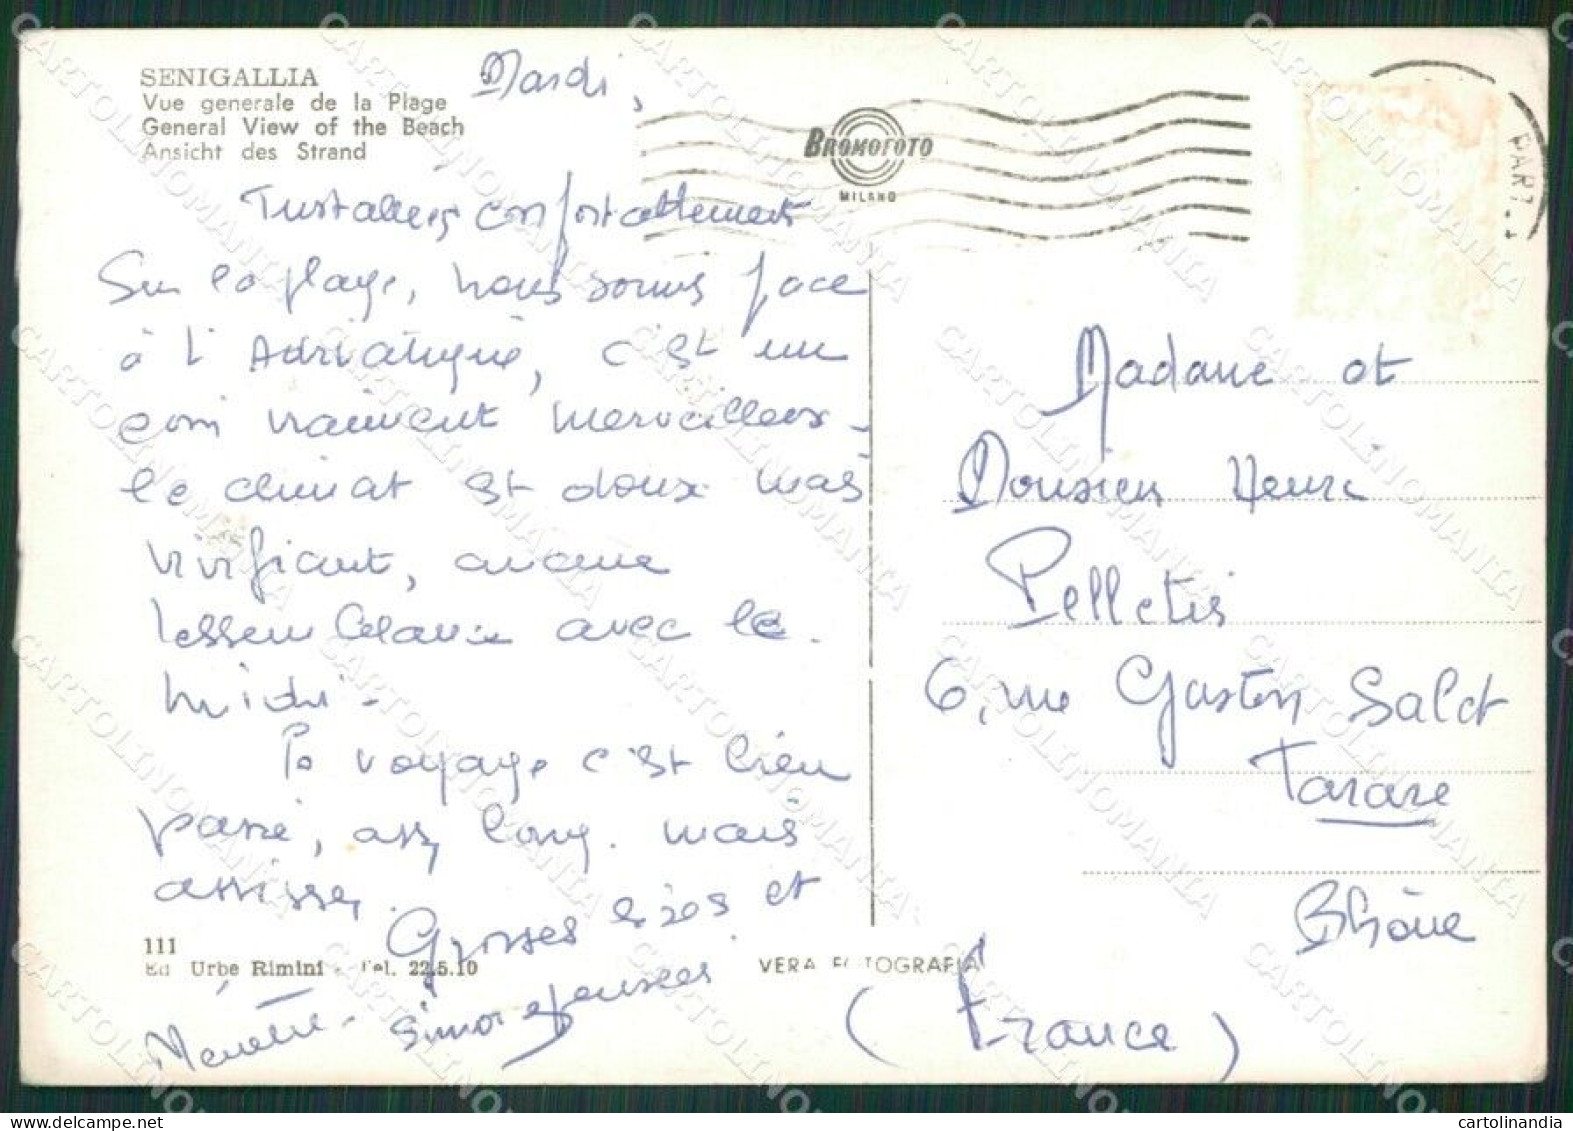 SENIGALLIA
Vue generale de la Plage
General View of the Beach
Ansicht des Strand
Mardi,
BROMOFOTO
MILANO
PAR
Installées confortablement
Sur la plage, nous sommes face
à l'Adriatique, c'est un
coin vraiment merveilleux -
le climat est doux mais
vivifiant, aucune
ressemblance avec le
midi -
Le voyage c'est bien
passé, assez long. mais
assises.
Grosses bises et
pensées
Simone
111
Ed Urbe Rimini - Tel. 22.5.10
VERA FOTOGRAFIA
Madame et
Monsieur Henri
Pelletis
6, rue Gaston Salet
Tarare
Rhône
(France)
CARTOLINOMANIA
cartolinandia